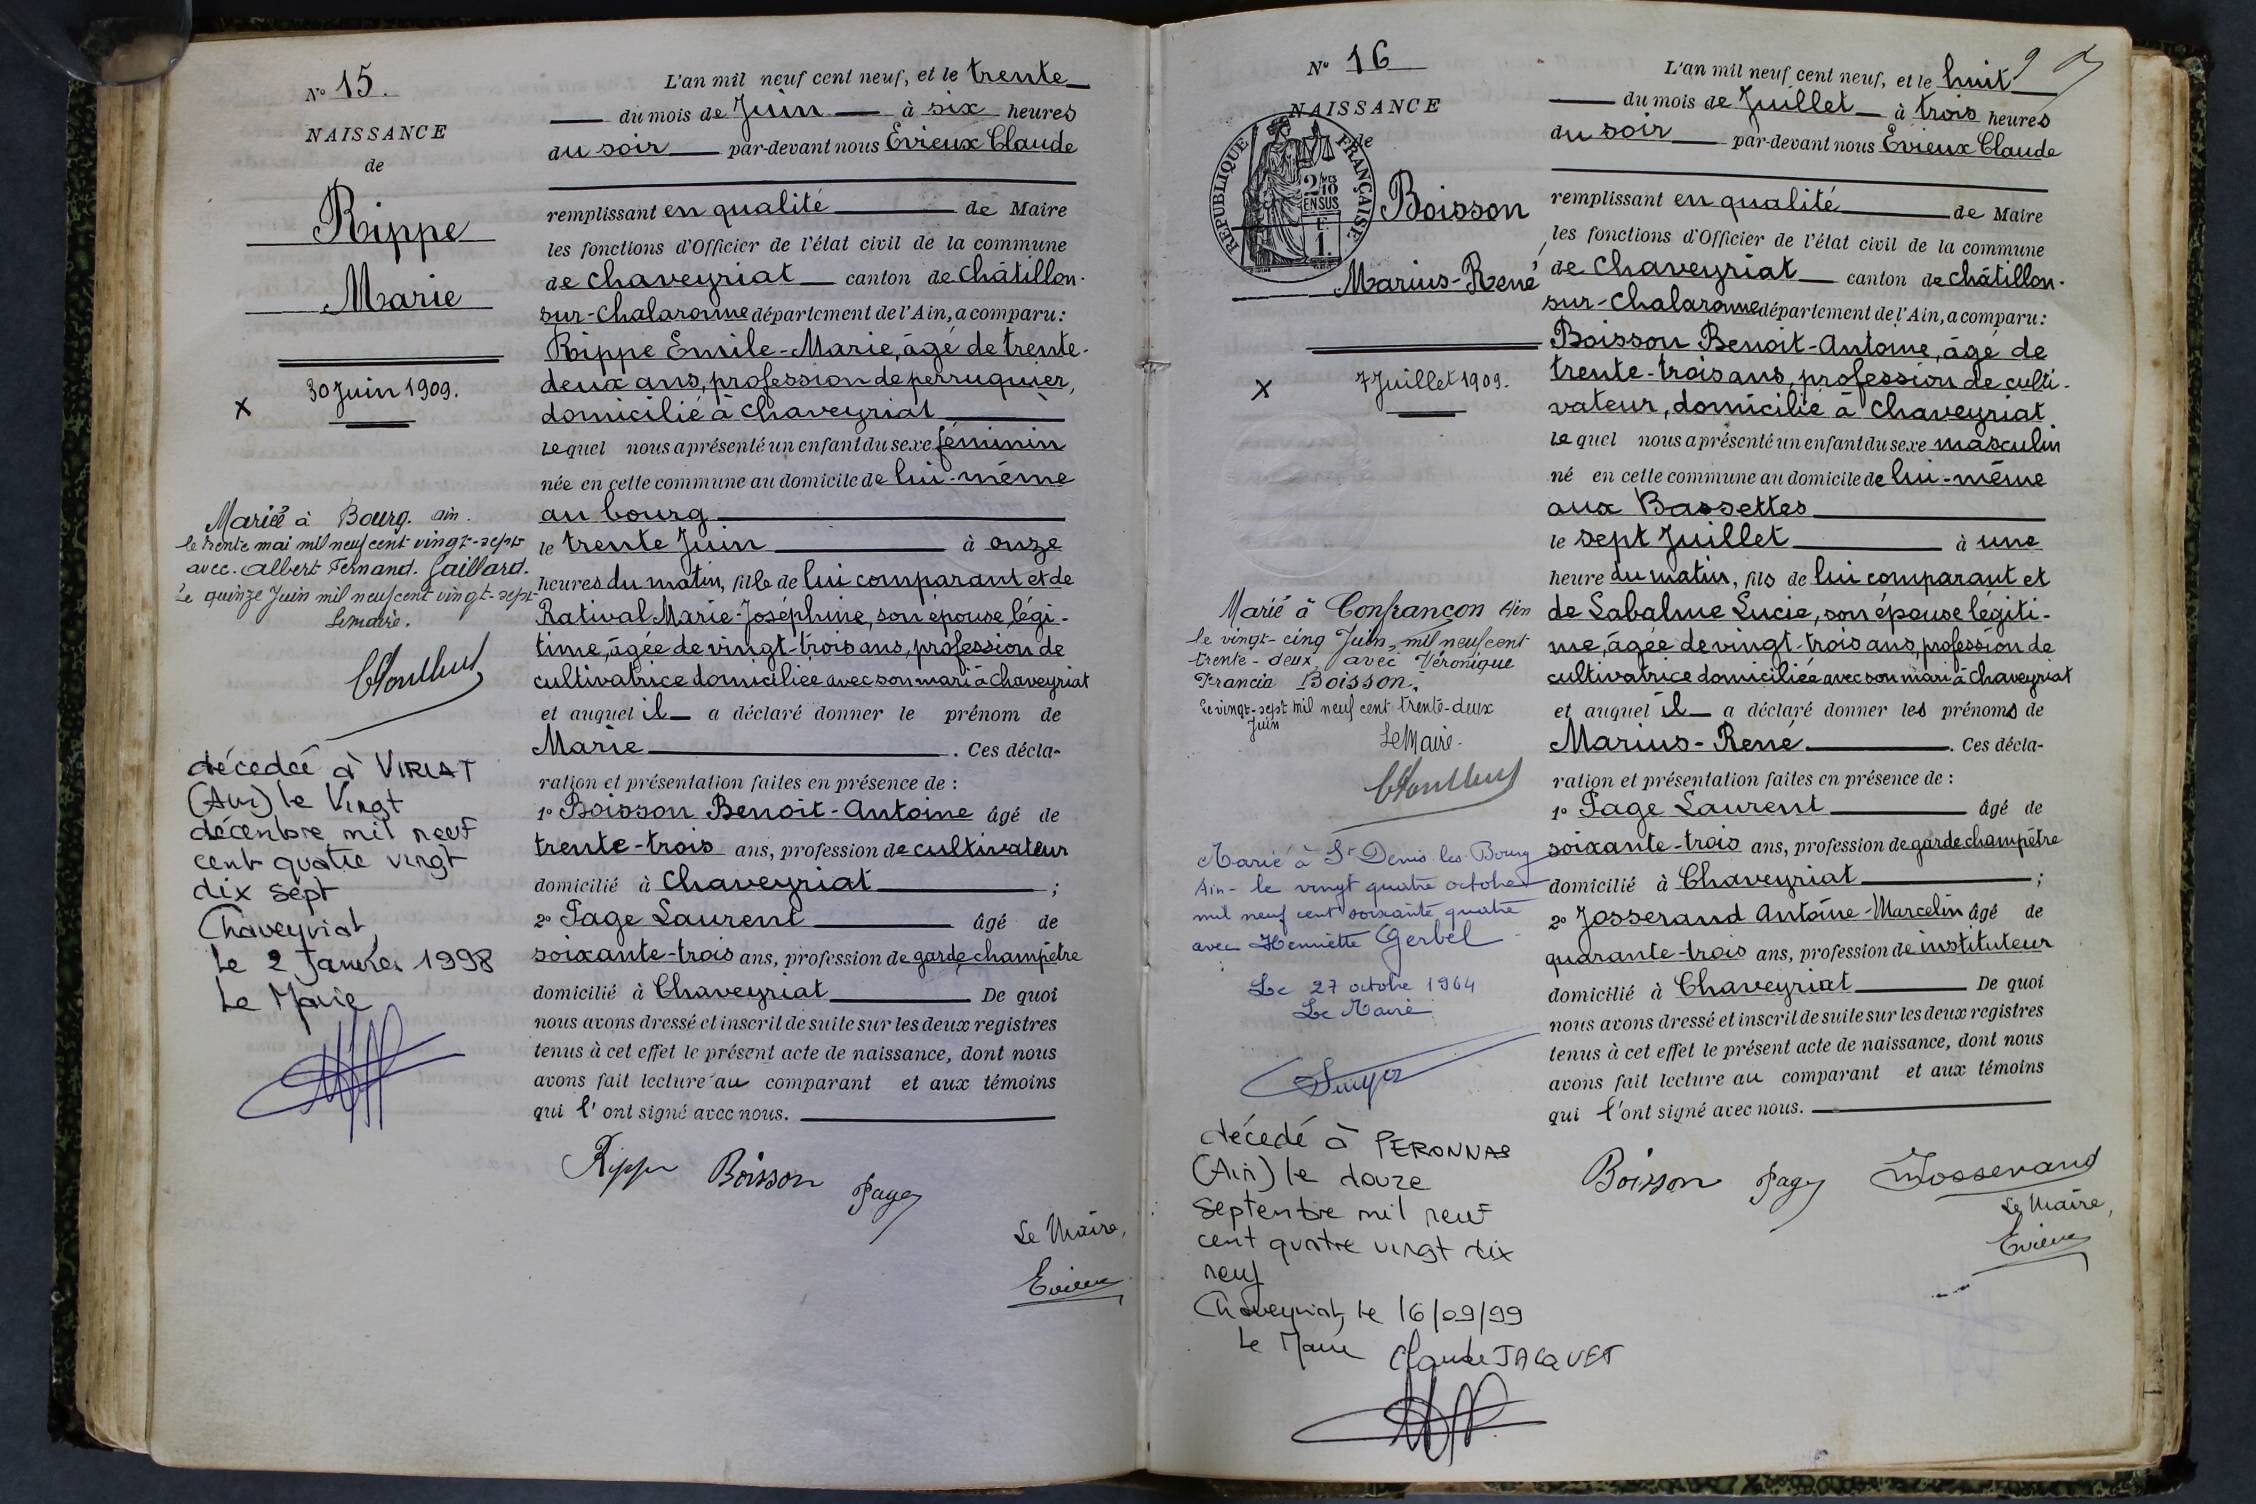 N° 15.
NAISSANCE
de
Rippe
Marie
30 Juin 1909.
x
Mariée à Bourg. Ain.
le trente mai mil neuf cent vingt-sept
avec. Albert Fernand. Gaillard.
Le quinze Juin mil neuf cent vingt-sept
Le maire.
décedée à VIRIAT
(Ain) le Vingt
décembre mil neuf
cent quatre vingt
dix sept
Chaveyriat,
Le 2 Janvier 1998
Le Maire
L'an mil neuf cent neuf, et le trente
du mois de Juin à six heures
du soir par-devant nous Evieux Claude
remplissant en qualité de Maire
les fonctions d'Officier de l'état civil de la commune
de Chaveyriat canton de Châtillon-
sur-Chalaronne département de l'Ain, a comparu:
Rippe Emile-Marie, âgé de trente-
deux ans, profession de perruquier,
domicilié à Chaveyriat
Lequel nous a présenté un enfant du sexe féminin
née en cette commune au domicile de lui-même
au bourg
le trente Juin à onze
heures du matin, fille de lui comparant et de
Ratival Marie-Joséphine, son épouse légi-
time, âgée de vingt-trois ans, profession de
cultivatrice domiciliée avec son mari à Chaveyriat
et auquel il a déclaré donner le prénom de
Marie. Ces décla-
ration et présentation faites en présence de :
1° Boisson Benoit-Antoine âgé de
trente-trois ans, profession de cultivateur
domicilié à Chaveyriat ;
2° Page Laurent âgé de
soixante-trois ans, profession de garde champêtre
domicilié à Chaveyriat De quoi
nous avons dressé et inscrit de suite sur les deux registres
tenus à cet effet le présent acte de naissance, dont nous
avons fait lecture au comparant et aux témoins
qui l'ont signé avec nous.
Rippe Boisson Page
Le Maire,
Evieux
N° 16
NAISSANCE
de
REPUBLIQUE FRANÇAISE
2/10 EN SUS
E.
1.
Boisson
Marius-René
x 7 Juillet 1909.
Marié à Confrançon Ain
le vingt-cinq Juin, mil neuf cent
trente-deux, avec Véronique
Francia Boisson.
Le vingt-sept mil neuf cent trente-deux
Juin
Le Maire.
Marié à St Denis les Bourg
Ain - le vingt quatre octobre
mil neuf cent soixante quatre
avec Henriette Gerbel
Le 27 octobre 1964
Le Maire
décedé à PERONNAS
(Ain) le douze
Septembre mil neuf
cent quatre vingt dix
neuf
Chaveyriat, le 16/09/99
Le Maire Claude JACQUET
9
L'an mil neuf cent neuf, et le huit
du mois de Juillet à trois heures
du soir par-devant nous Evieux Claude
remplissant en qualité de Maire
les fonctions d'Officier de l'état civil de la commune
de Chaveyriat canton de Châtillon-
sur-Chalaronne département de l'Ain, a comparu:
Boisson Benoit-Antoine, âgé de
trente-trois ans, profession de culti-
vateur, domicilié à Chaveyriat
Lequel nous a présenté un enfant du sexe masculin
né en cette commune au domicile de lui-même
aux Bassettes
le sept Juillet à une
heure du matin, fils de lui comparant et
de Labalme Lucie, son épouse légiti-
me, âgée de vingt-trois ans, profession de
cultivatrice domiciliée avec son mari à Chaveyriat
et auquel il a déclaré donner les prénoms de
Marius-René. Ces décla-
ration et présentation faites en présence de :
1° Page Laurent âgé de
soixante-trois ans, profession de garde champêtre
domicilié à Chaveyriat ;
2° Josserand Antoine-Marcelin âgé de
quarante-trois ans, profession de instituteur
domicilié à Chaveyriat De quoi
nous avons dressé et inscrit de suite sur les deux registres
tenus à cet effet le présent acte de naissance, dont nous
avons fait lecture au comparant et aux témoins
qui l'ont signé avec nous.
Boisson Page Josserand
Le Maire,
Evieux